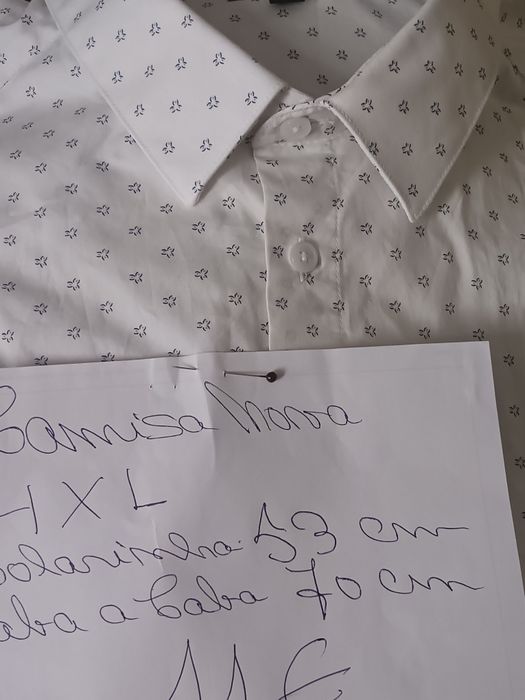 Camisa Nova
4XL
olarinho: 53 cm
aba a Caba 70 cm
11 €